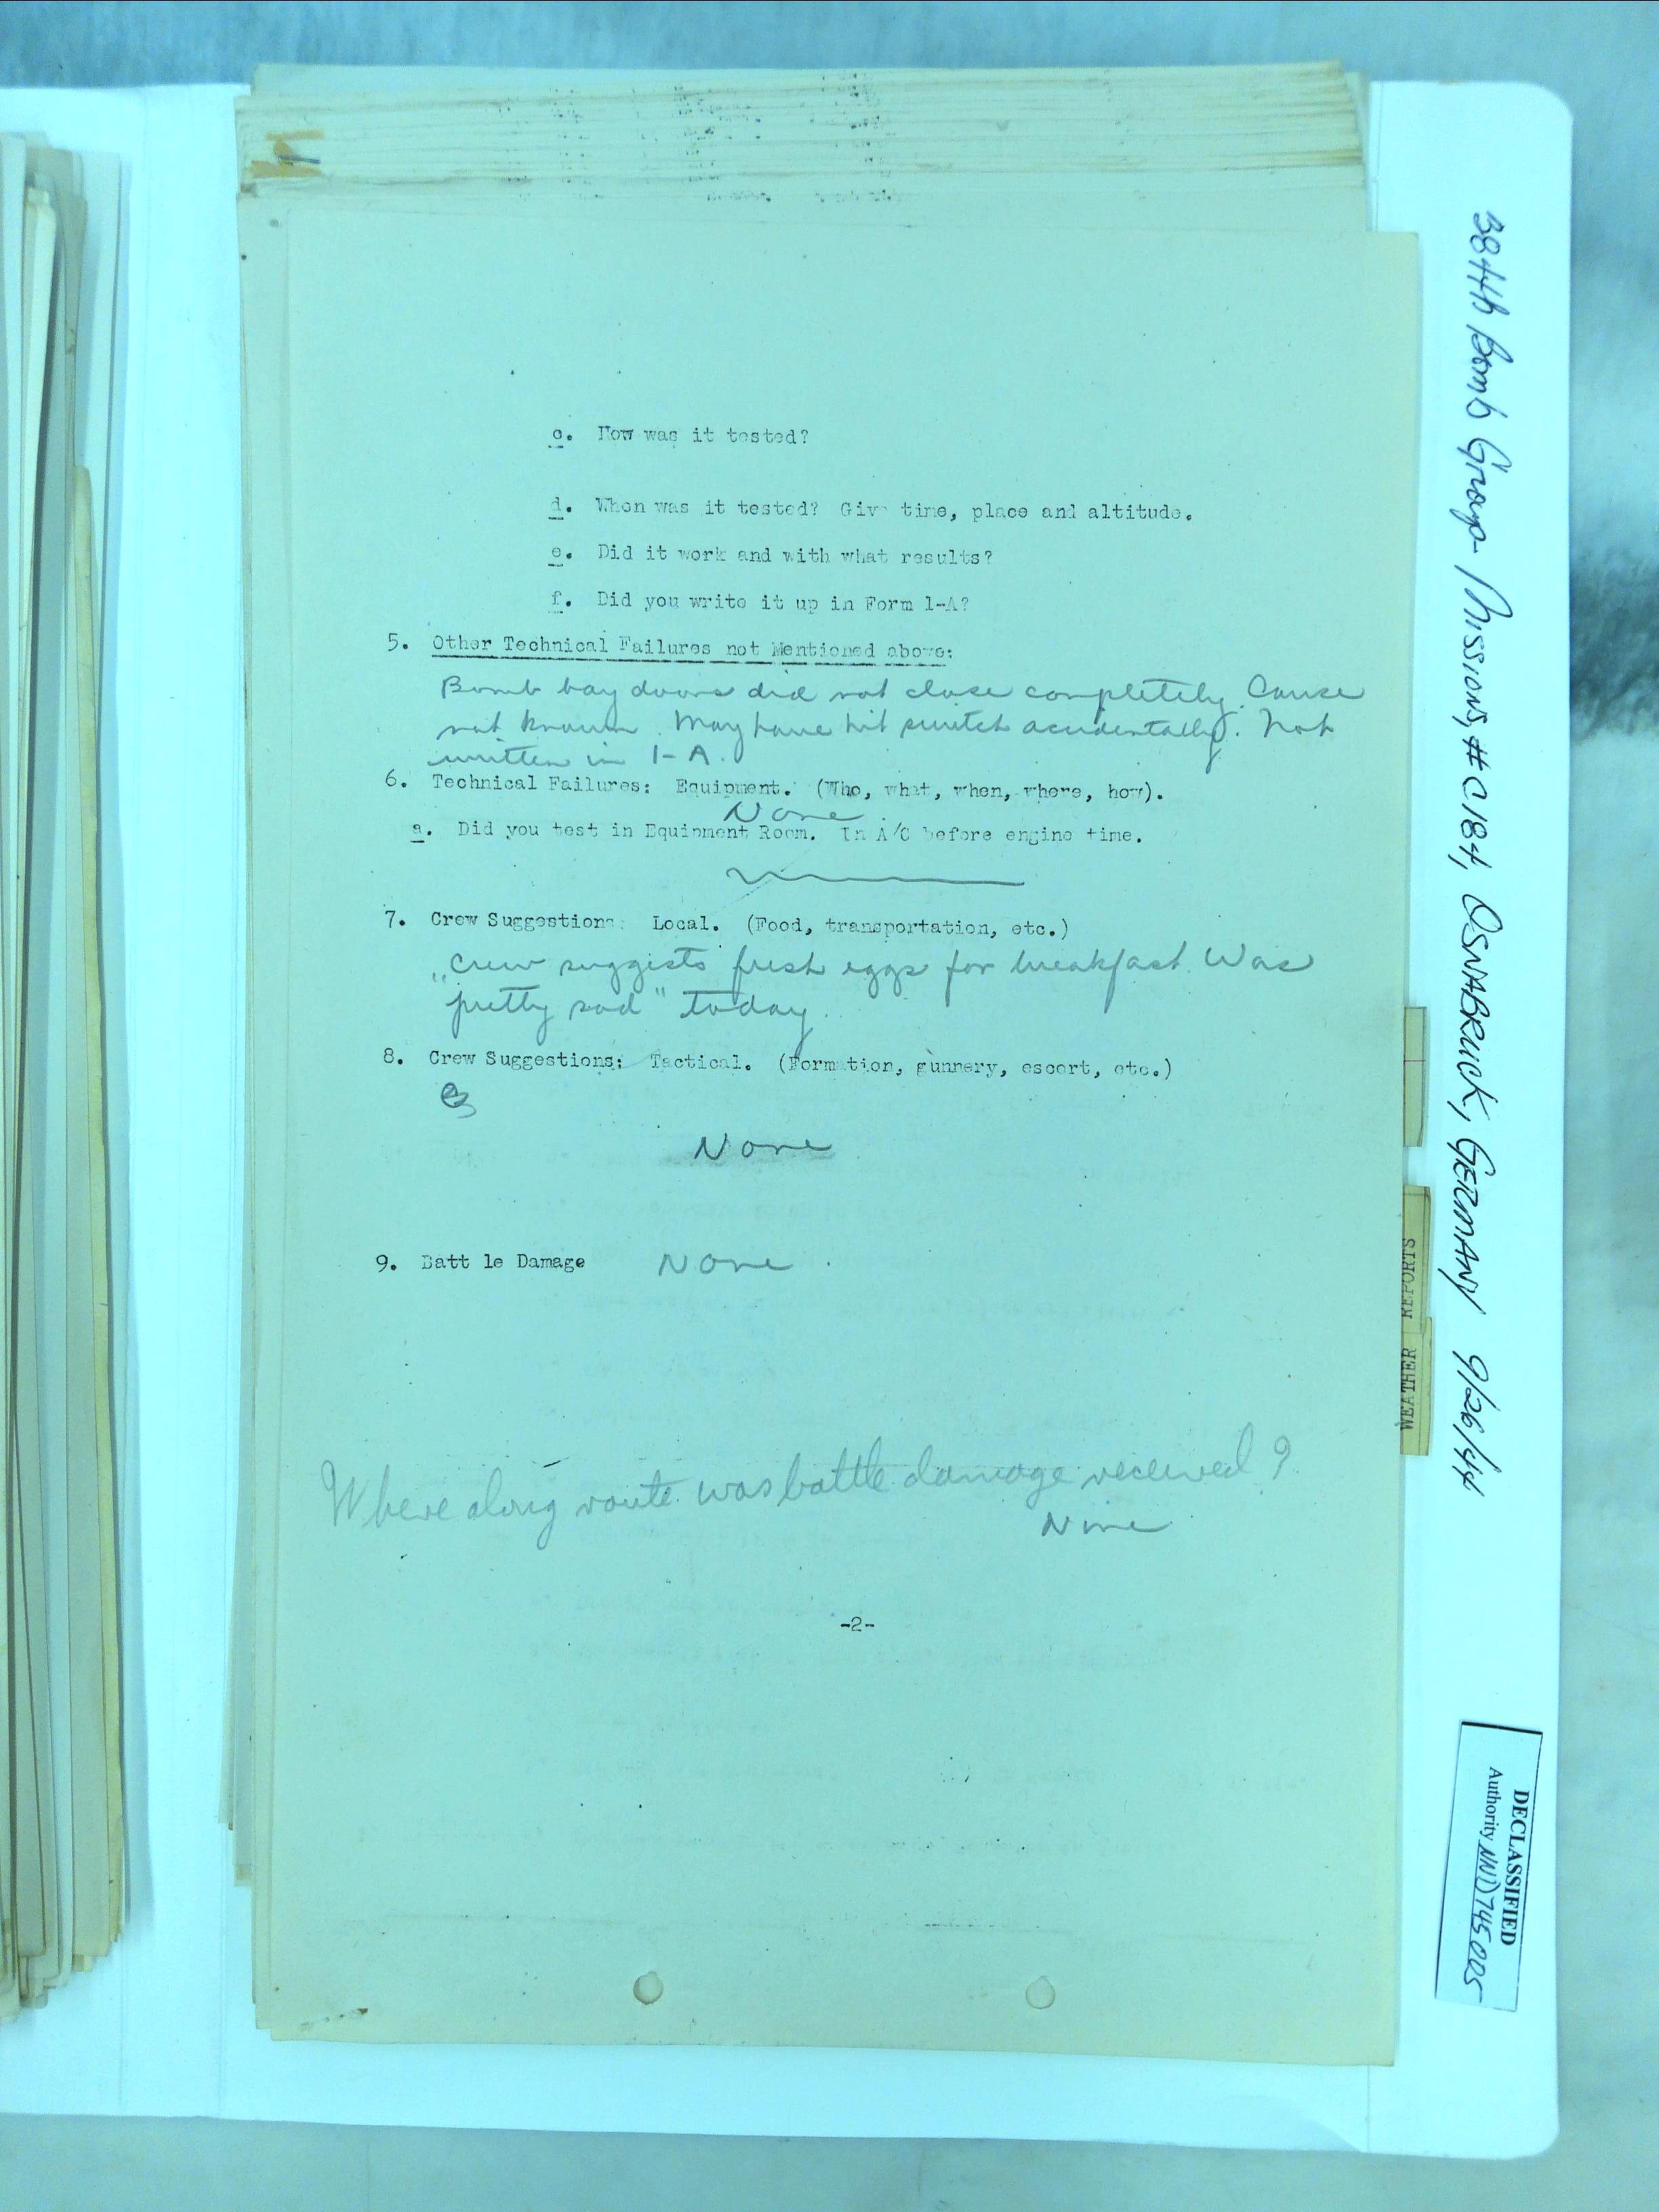 c. How was it tested?
d. When was it tested? Give time, place and altitude.
e. Did it work and with what results?
f. Did you write it up in Form 1-A?
5. Other Technical Failures not Mentioned above:
Bomb bay doors did not close completely. Cause
not known. May have hit switch accidentally. Not
written in 1-A.
6. Technical Failures: Equipment. (Who, what, when, where, how).
None
a. Did you test in Equipment Room. In A/C before engine time.
7. Crew Suggestions: Local. (Food, transportation, etc.)
Crew suggests fresh eggs for breakfast. Was
"pretty sad" today.
8. Crew Suggestions: Tactical. (Formation, gunnery, escort, etc.)
None
9. Batt le Damage None.
Where along route was battle damage received?
None
-2-
384th Bomb Group Missions, #C184, OSNABRUCK, GERMANY 9/26/44
WEATHER REPORTS
DECLASSIFIED
Authority NND745005